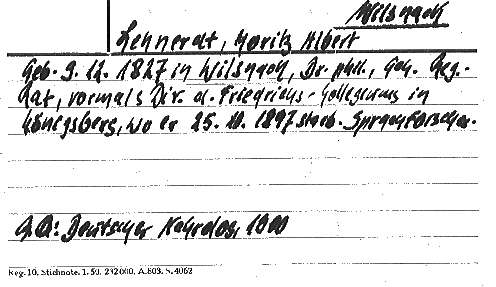 Wilsnack
Lehnerdt, Moritz Albert
Geb. 9. 12. 1827 in Wilsnack, Dr. phil., Geh. Reg.-
Rat, vormals Dir. d. Friedrichs-Collegiums in
Königsberg, wo er 25. 10. 1897 starb. Sprachforscher.
Deutscher Nekrolog 1900
Reg. 10. Stichnote. 1. 50. 232000. A. 803. S. 4062